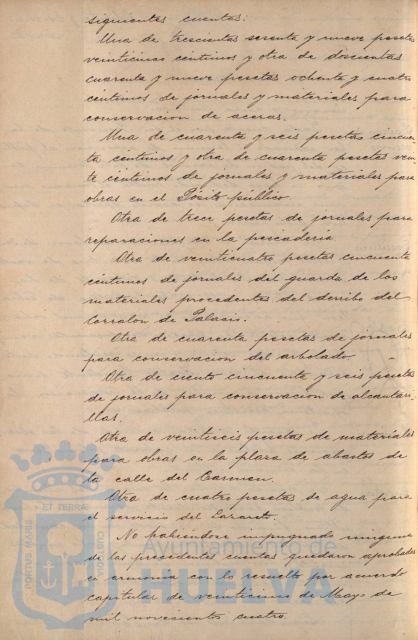 siguientes cuentas:
Una de trescientas sesenta y nueve pesetas
veinticinco céntimos y otra de doscientas
cuarenta y nueve pesetas ochenta y cuatro
céntimos de jornales y materiales para
conservacion de aceras.
Una de cuarenta y seis pesetas cincuen-
ta céntimos y otra de cuarenta pesetas vein-
te céntimos de jornales y materiales para
obras en el Pósito público
Otra de trece pesetas de jornales para
reparaciones en la pescadería
Otra de veinticuatro pesetas cincuenta
céntimos de jornales del guarda de los
materiales procedentes del derribo del
Corralon de Palacio.
Otra de cuarenta pesetas de jornales
para conservacion del arbolado
Otra de ciento cincuenta y seis pesetas
de jornales para conservacion de alcantari-
llas.
Otra de veintiseis pesetas de materiales
para obras en la plaza de abastos de
la calle del Carmen.
Otra de cuatro pesetas de agua para
el servicio del Lazareto.
No habiéndose impugnado ninguna
de las precedentes cuentas quedaron aprobadas
en armonia con lo resuelto por acuerdo
capitular de veinticinco de Mayo de
mil novecientos cuatro.
PORTUS MARIS ET TERRAE CUSTODIA
Ayuntamiento de
HUELVA